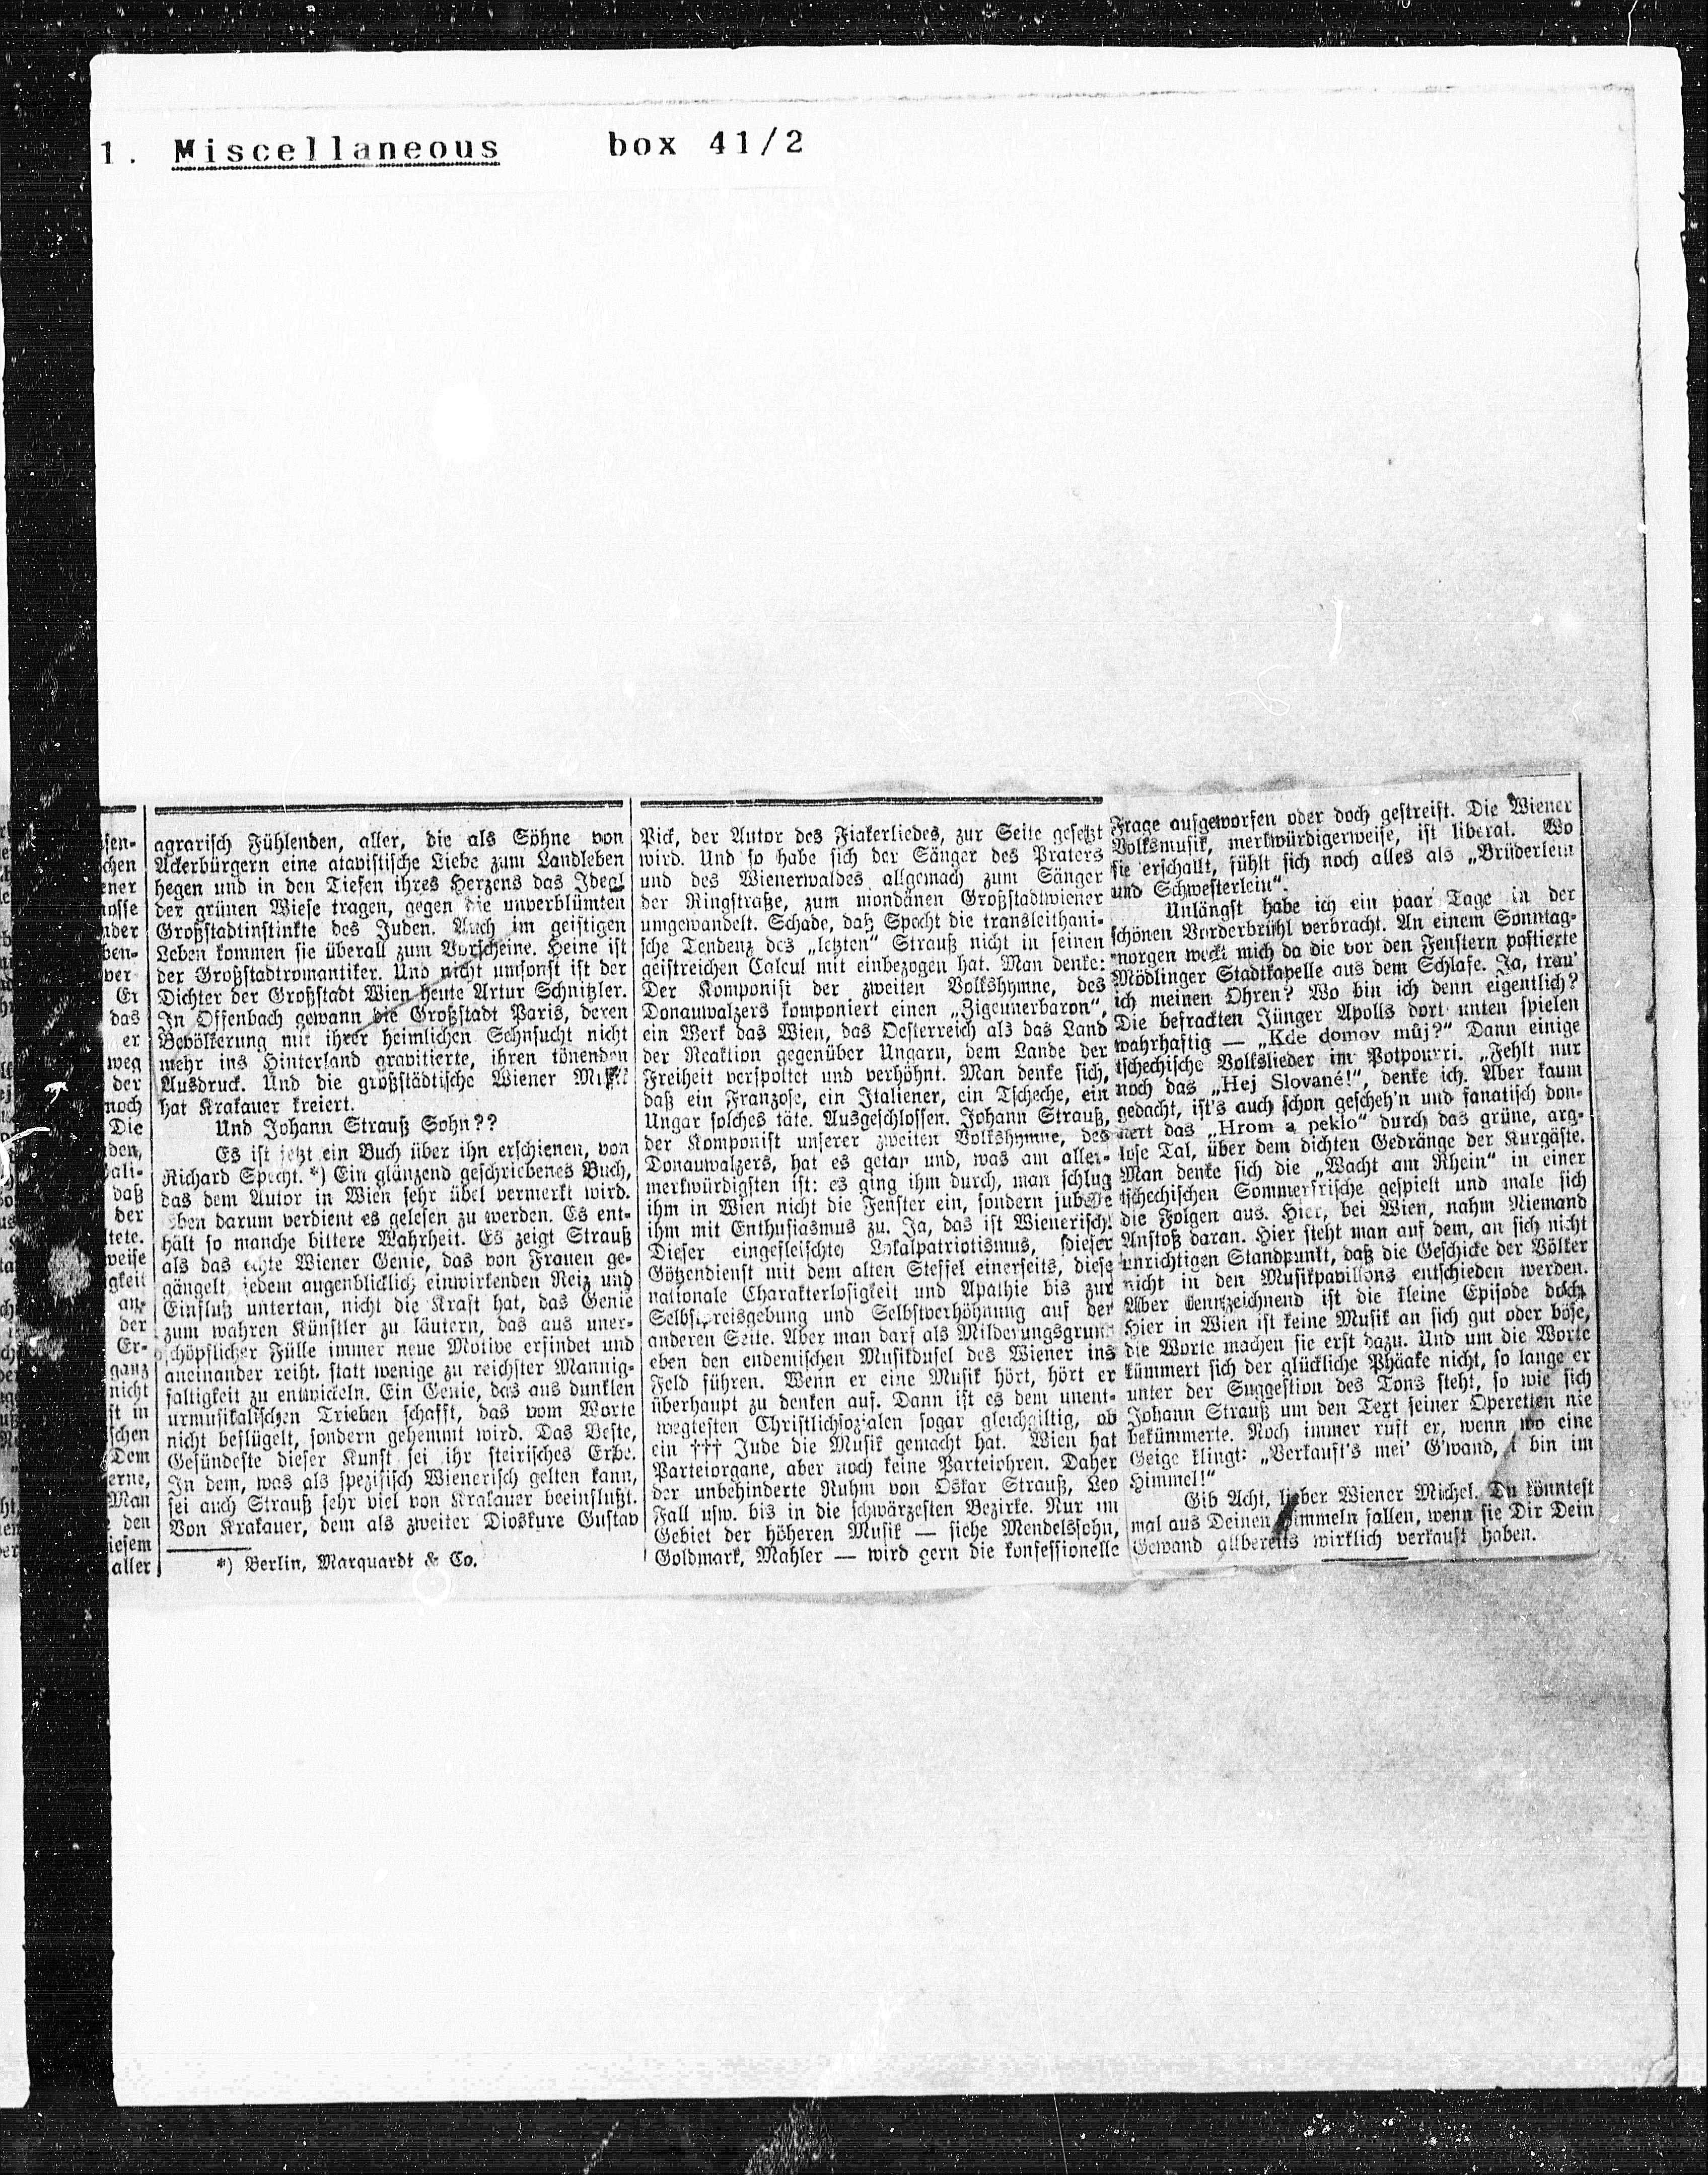 1. Miscellaneous box 41/2
agrarisch Fühlenden, aller, die als Söhne von
Ackerbürgern eine atavistische Liebe zum Landleben
hegen und in den Tiefen ihres Herzens das Ideal
der grünen Wiese tragen, gegen die unverblümten
Großstadtinstinkte des Juden. Auch im geistigen
Leben kommen sie überall zum Vorscheine. Heine ist
der Großstadtromantiker. Und nicht umsonst ist der
Dichter der Großstadt Wien heute Artur Schnitzler.
In Offenbach gewann die Großstadt Paris, deren
Bevölkerung mit ihrer heimlichen Sehnsucht nicht
mehr ins Hinterland gravitierte, ihren tönenden
Ausdruck. Und die großstädtische Wiener Musik
hat Krakauer kreiert.
Und Johann Strauß Sohn??
Es ist jetzt ein Buch über ihn erschienen, von
Richard Specht.*) Ein glänzend geschriebenes Buch,
das dem Autor in Wien sehr übel vermerkt wird.
Eben darum verdient es gelesen zu werden. Es ent-
hält so manche bittere Wahrheit. Es zeigt Strauß
als das echte Wiener Genie, das von Frauen ge-
gängelt, jedem augenblicklich einwirkenden Reiz und
Einfluß untertan, nicht die Kraft hat, das Genie
zum wahren Künstler zu läutern, das aus uner-
schöpflicher Fülle immer neue Motive erfindet und
aneinander reiht, statt wenige zu reichster Mannig-
faltigkeit zu entwickeln. Ein Genie, das aus dunklen
urmusikalischen Trieben schafft, das vom Worte
nicht beflügelt, sondern gehemmt wird. Das Beste,
Gesündeste dieser Kunst sei ihr steirisches Erbe.
In dem, was als spezifisch Wienerisch gelten kann,
sei auch Strauß sehr viel von Krakauer beeinflußt.
Von Krakauer, dem als zweiter Dioskure Gustav
*) Berlin, Marquardt & Co.
Pick, der Autor des Fiakerliedes, zur Seite gesetzt
wird. Und so habe sich der Sänger des Praters
und des Wienerwaldes allgemach zum Sänger
der Ringstraße, zum mondänen Großstadtwiener
umgewandelt. Schade, daß Specht die transleithani-
sche Tendenz des „letzten“ Strauß nicht in seinen
geistreichen Calcul mit einbezogen hat. Man denke:
Der Komponist der zweiten Volkshymne, des
Donauwalzers komponiert einen „Zigeunerbaron“,
ein Werk das Wien, das Oesterreich als das Land
der Reaktion gegenüber Ungarn, dem Lande der
Freiheit verspottet und verhöhnt. Man denke sich,
daß ein Franzose, ein Italiener, ein Tscheche, ein
Ungar solches täte. Ausgeschlossen. Johann Strauß,
der Komponist unserer zweiten Volkshymne, des
Donauwalzers, hat es getan und, was am aller-
merkwürdigsten ist: es ging ihm durch, man schlug
ihm in Wien nicht die Fenster ein, sondern jubelte
ihm mit Enthusiasmus zu. Ja, das ist Wienerisch!
Dieser eingefleischte Lokalpatriotismus, dieser
Götzendienst mit dem alten Steffel einerseits, diese
nationale Charakterlosigkeit und Apathie bis zur
Selbstpreisgebung und Selbstverhöhnung auf der
anderen Seite. Aber man darf als Milderungsgrund
eben den endemischen Musikdusel des Wiener ins
Feld führen. Wenn er eine Musik hört, hört er
überhaupt zu denken auf. Dann ist es dem unent-
wegtesten Christlichsozialen sogar gleichgiltig, ob
ein ††† Jude die Musik gemacht hat. Wien hat
Parteiorgane, aber noch keine Parteiohren. Daher
der unbehinderte Ruhm von Oskar Strauß, Leo
Fall usw. bis in die schwärzesten Bezirke. Nur im
Gebiet der höheren Musik — siehe Mendelssohn,
Goldmark, Mahler — wird gern die konfessionelle
Frage aufgeworfen oder doch gestreift. Die Wiener
Volksmusik, merkwürdigerweise, ist liberal. Wo
sie erschallt, fühlt sich noch alles als „Brüderlein
und Schwesterlein“.
Unlängst habe ich ein paar Tage in der
schönen Vorderbrühl verbracht. An einem Sonntag-
morgen weckt mich da die vor den Fenstern postierte
Mödlinger Stadtkapelle aus dem Schlafe. Ja, trau'
ich meinen Ohren? Wo bin ich denn eigentlich?
Die befrackten Jünger Apolls dort unten spielen
wahrhaftig — „Kde domov můj?“ Dann einige
tschechische Volkslieder im Potpourri. „Fehlt nur
noch das „Hej Slované!“, denke ich. Aber kaum
gedacht, ist's auch schon gescheh'n und fanatisch don-
nert das „Hrom a peklo“ durch das grüne, arg-
lose Tal, über dem dichten Gedränge der Kurgäste.
Man denke sich die „Wacht am Rhein“ in einer
tschechischen Sommerfrische gespielt und male sich
die Folgen aus. Hier, bei Wien, nahm Niemand
Anstoß daran. Hier steht man auf dem, an sich nicht
unrichtigen Standpunkt, daß die Geschicke der Völker
nicht in den Musikpavillons entschieden werden.
Aber kennzeichnend ist die kleine Episode doch.
Hier in Wien ist keine Musik an sich gut oder böse,
die Worte machen sie erst dazu. Und um die Worte
kümmert sich der glückliche Phäake nicht, so lange er
unter der Suggestion des Tons steht, so wie sich
Johann Strauß um den Text seiner Operetten nie
bekümmerte. Noch immer ruft er, wenn wo eine
Geige klingt: „Verkauft's mei' G'wand, i bin im
Himmel!“
Gib Acht, lieber Wiener Michel. Du könntest
mal aus Deinen Himmeln fallen, wenn sie Dir Dein
Gewand allbereits wirklich verkauft haben.